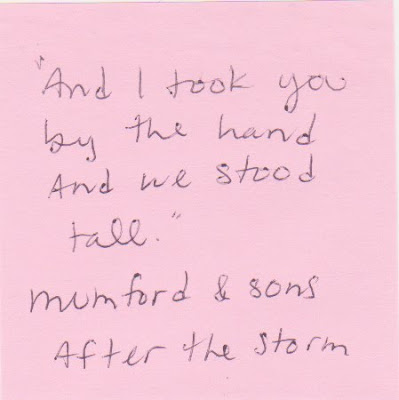 "And I took you
by the hand
And we stood
tall."
mumford & sons
After the storm